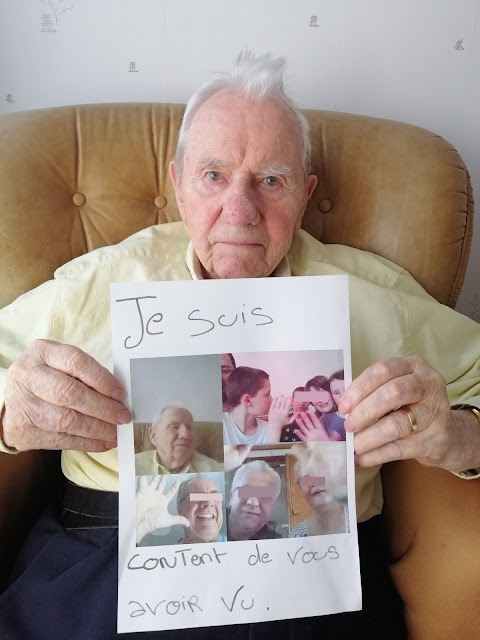 Je suis
conTent de vous
avoir vu.